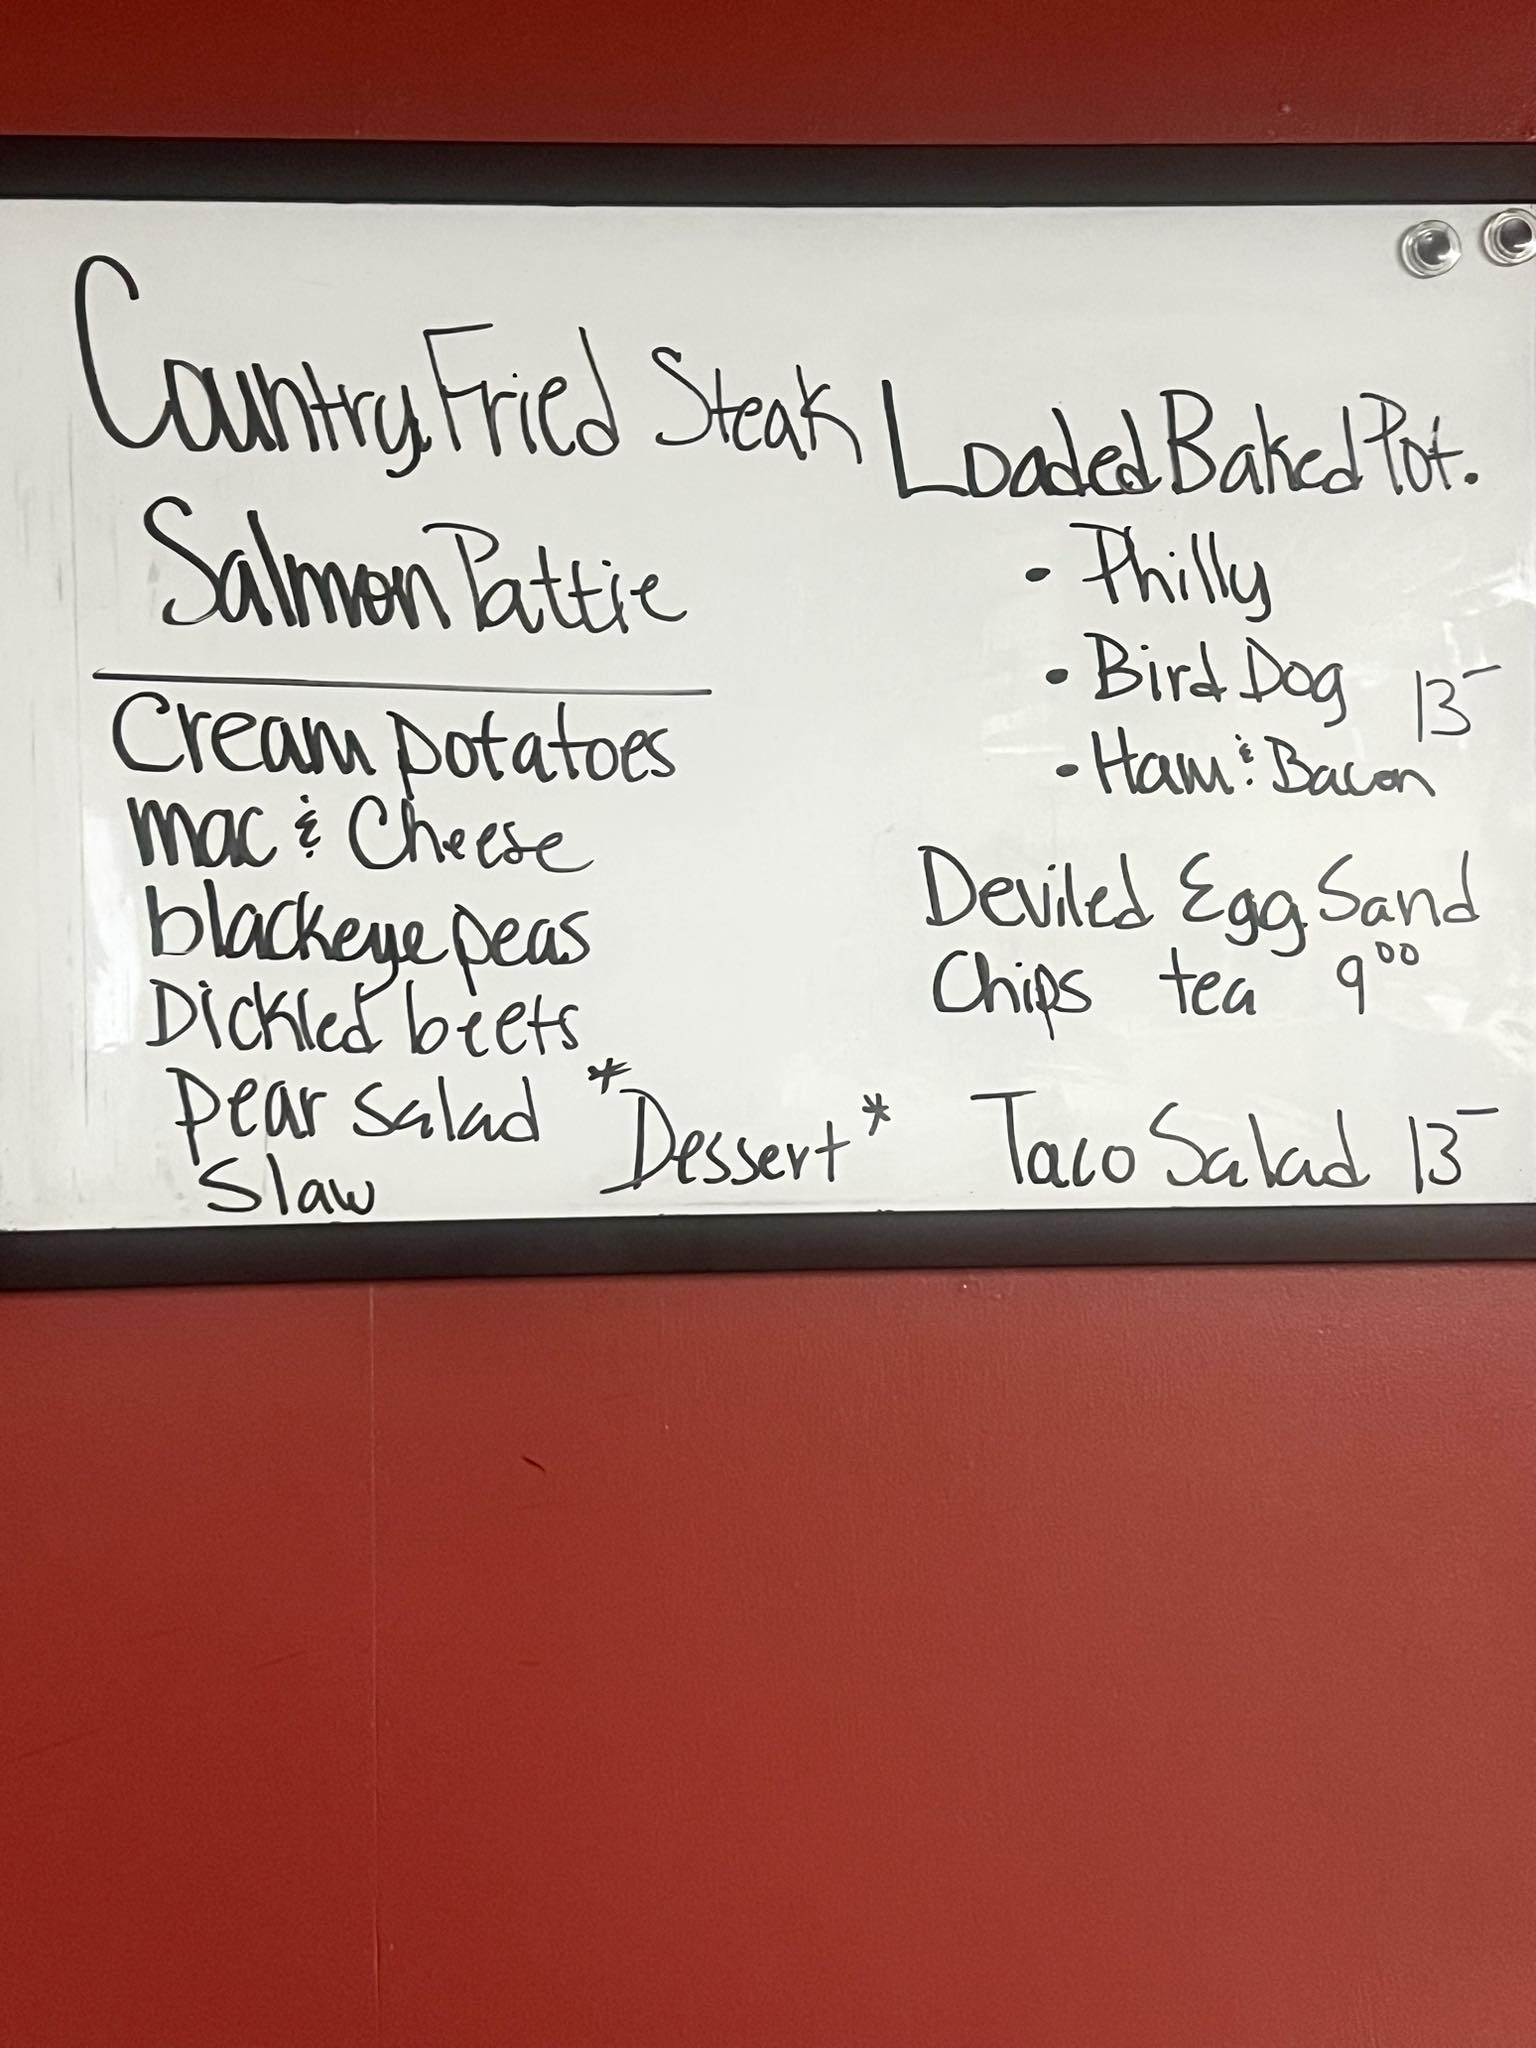 Country Fried Steak
Salmon Pattie
Cream potatoes
mac & Cheese
blackeye peas
Pickled beets
pear salad
Slaw
*Dessert*
Loaded Baked Pot.
• Philly
• Bird Dog 13-
• Ham & Bacon
Deviled Egg Sand
Chips tea 9⁰⁰
Taco Salad 13-